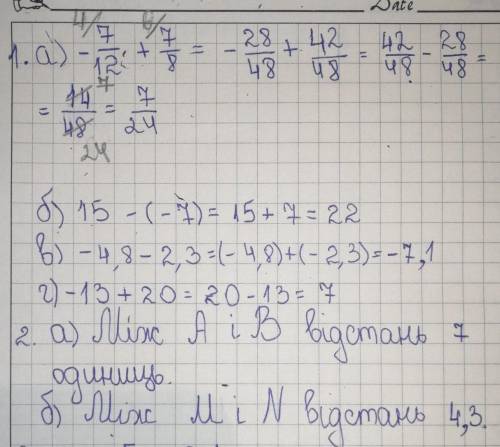 Date
1. а) -7/12 + 7/8 = - 28/48 + 42/48 = 42/48 - 28/48 =
= 14/48 = 7/24
б) 15 - (- 7) = 15 + 7 = 22
в) -4,8 - 2,3 = (-4,8) + (-2,3) = -7,1
г) -13 + 20 = 20 - 13 = 7
2. а) Між А і В відстань 7
одиниць.
б) Між М і N відстань 4,3.